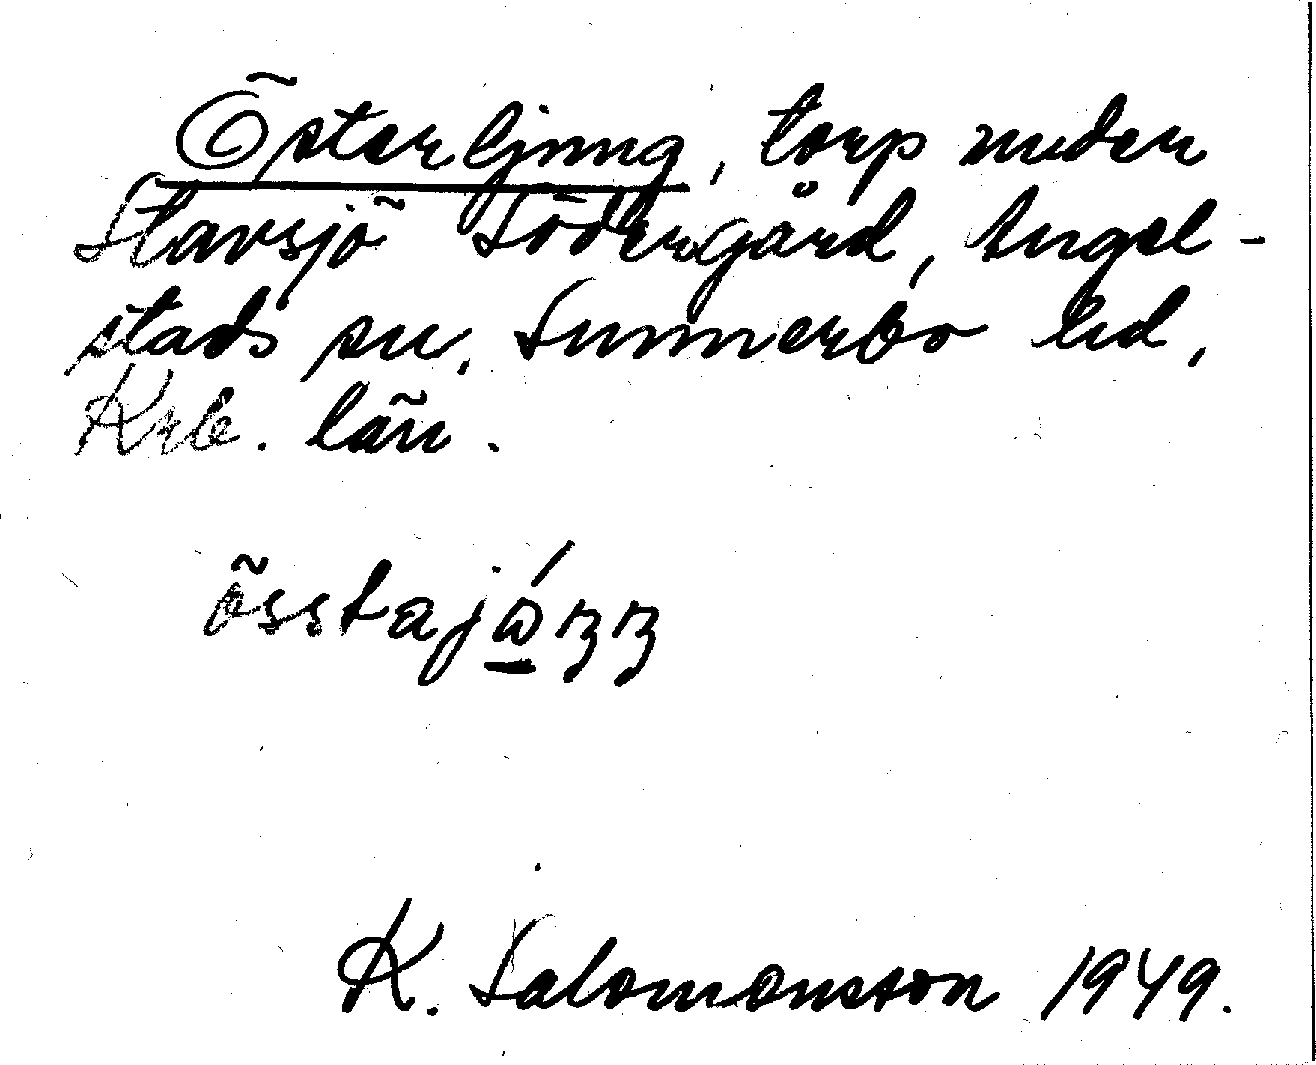 Österljung, torp under
Stavsjö Södergård, Angel-
stads sn, Sunnerbo hd,
Krb. län.
össtajóŋŋ
K. Salomonsson 1949.